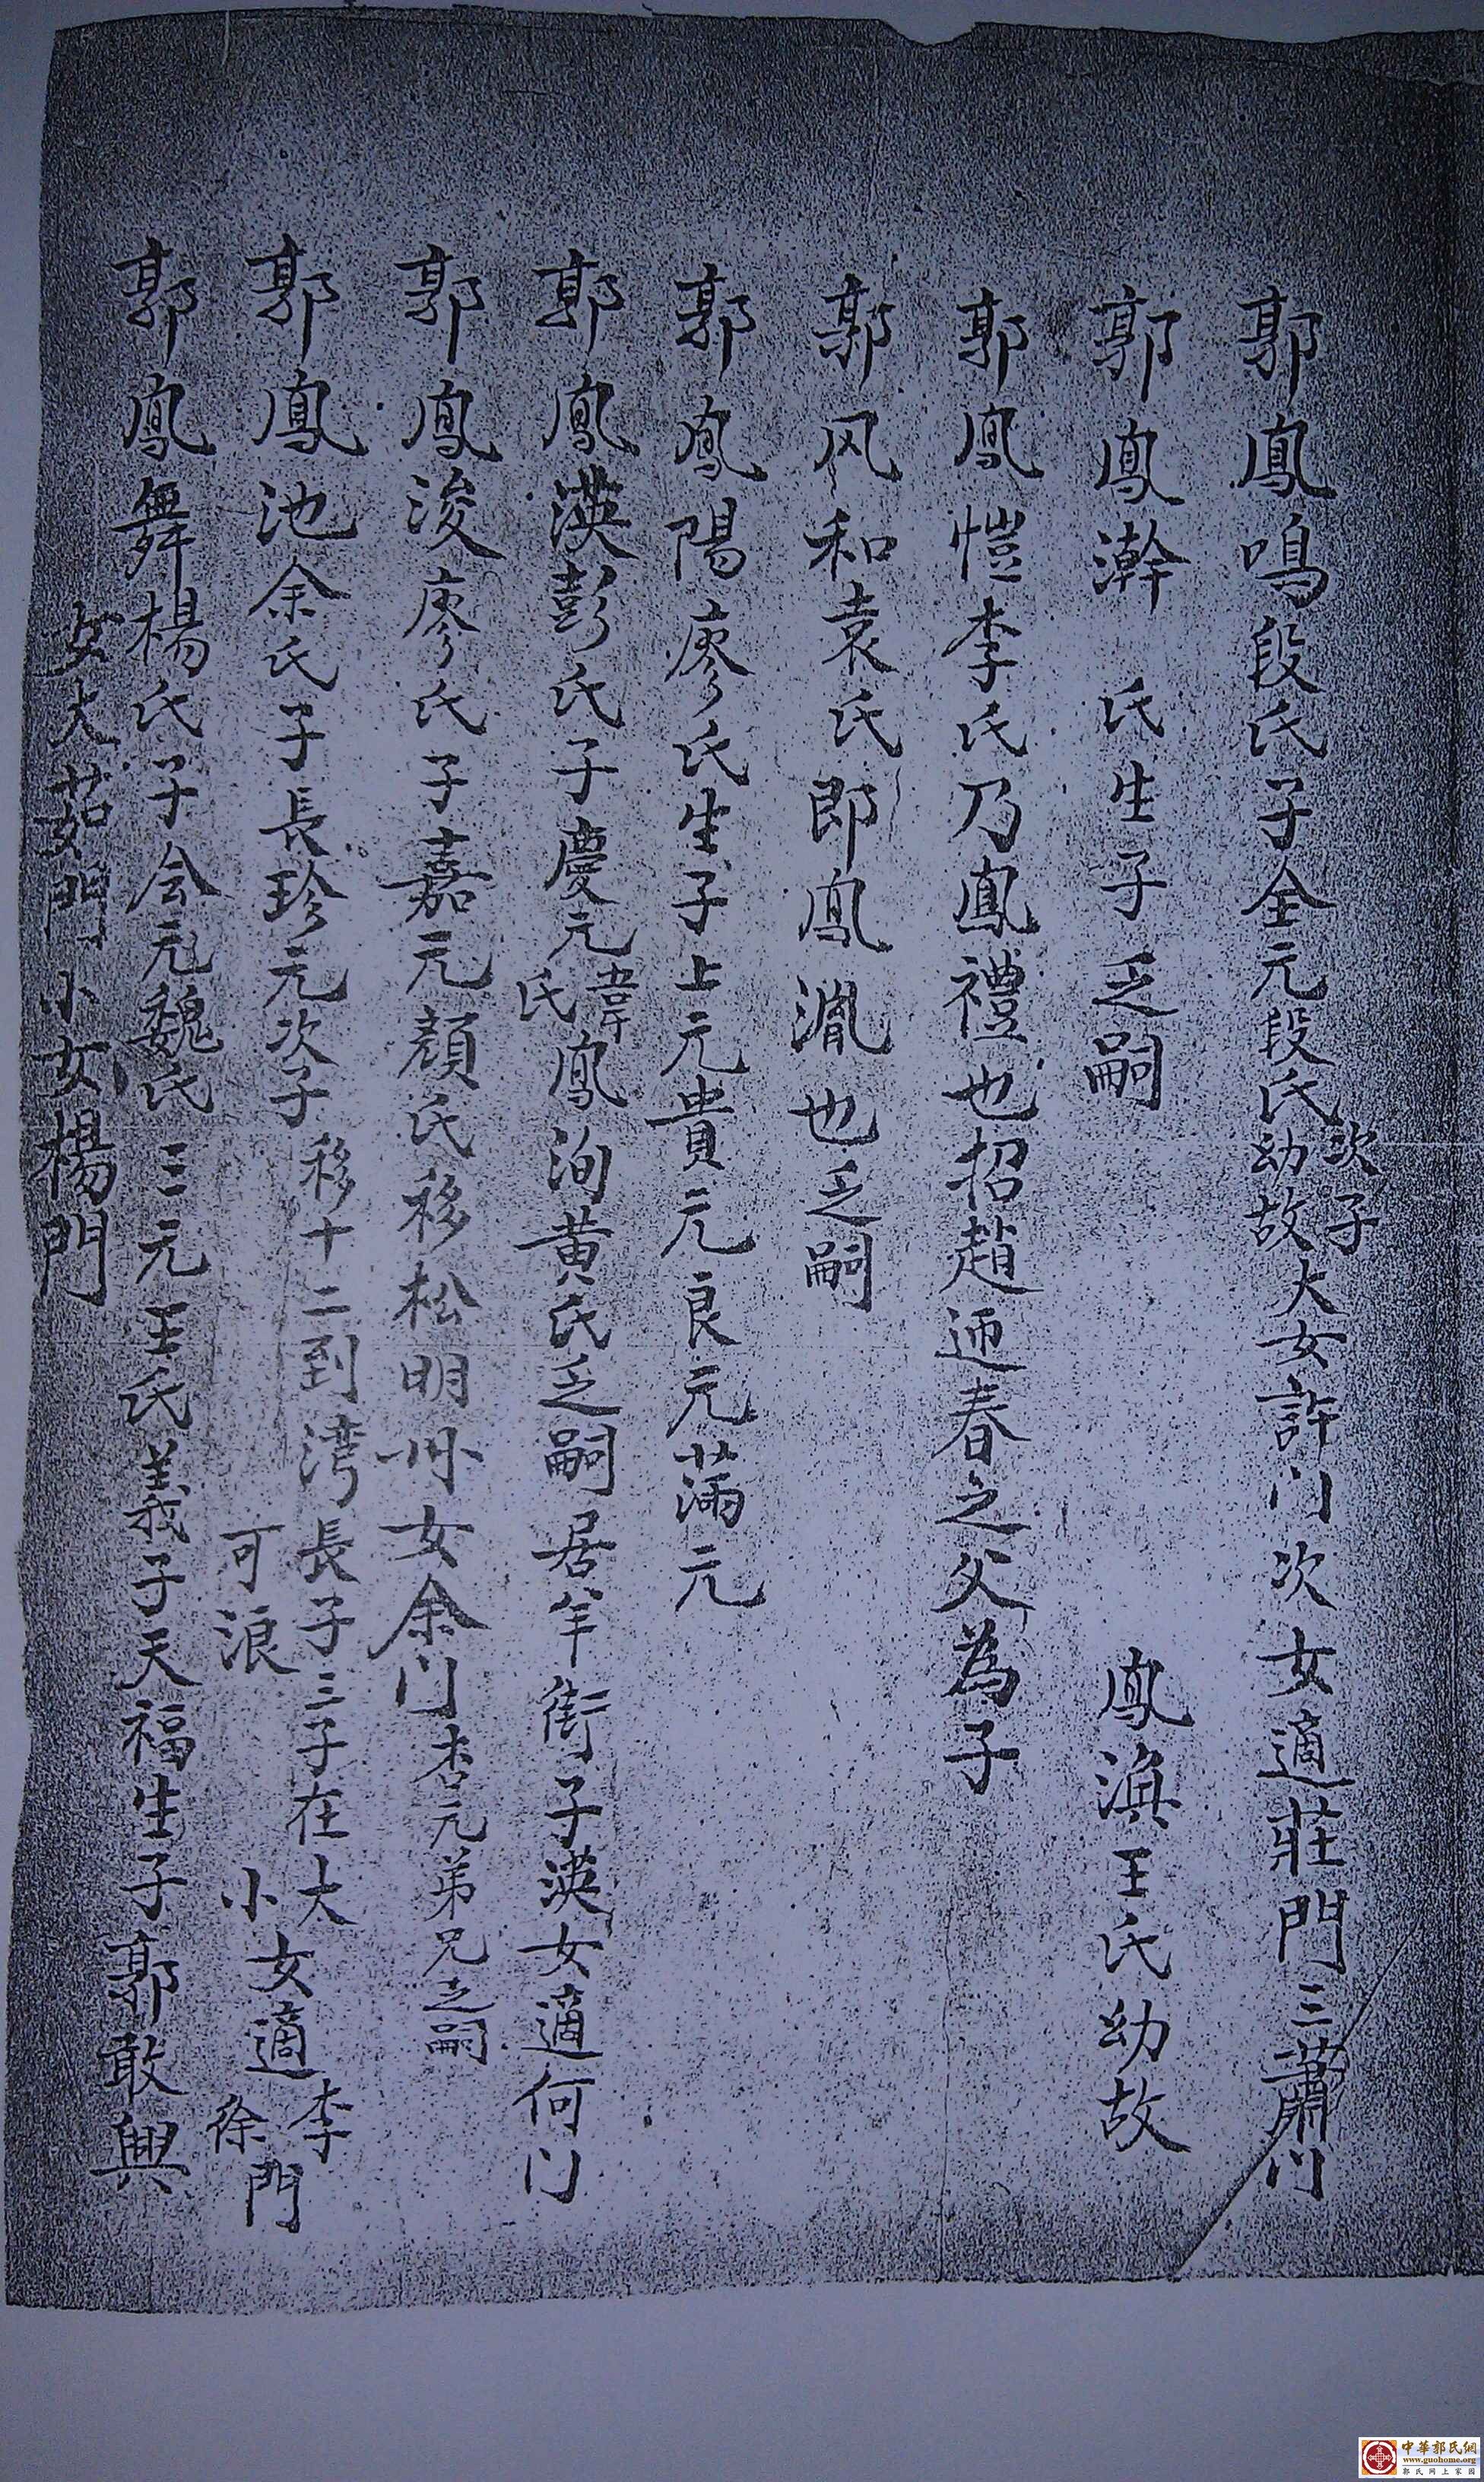 郭鳳鳴段氏子全元段氏次子幼故大女許门次女適莊門三蕭门
郭鳳瀚 氏生子乏嗣 鳳渙王氏幼故
郭鳳愷李氏乃鳳禮也招趙迊春之父為子
郭风和袁氏即鳳濦也乏嗣
郭鳳陽廖氏生子上元貴元良元蒲元
郭鳳渶彭氏子慶元韋氏鳳洵黄氏乏嗣居羊街子渶女適何门
郭鳳浚廖氏子嘉元顔氏移松明州女余门杏元弟兄乏嗣
郭鳳池余氏子長珍元次子移十二到湾長子三子在可浪大小女適李徐門
郭鳳舞楊氏子会元魏氏三元王氏義子天福生子郭敢興
女大茹門小女楊門
中華郭氏網
www.guohome.org
郭氏网上家园